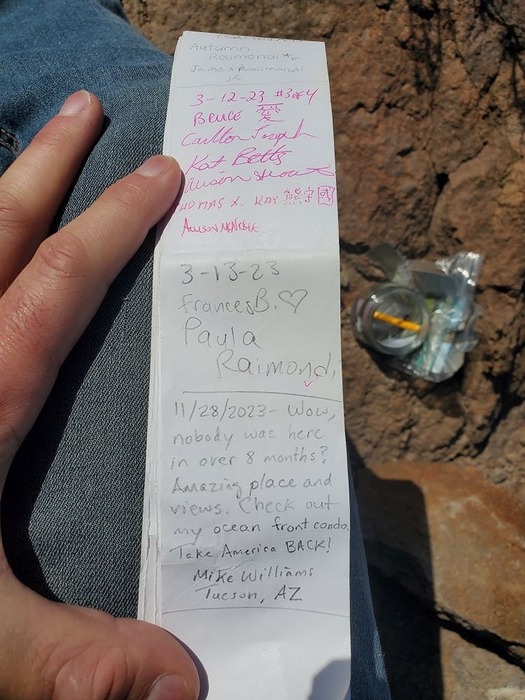 Autumn
Raimondi
James Raimondi
3-12-23 #3 of 4
BRUCE
Carlton Joseph
Kat Betts
Alison
THOMAS X. KAY 熊
ALLISON
3-13-23
Frances B. ♡
Paula
Raimondi
11/28/2023- Wow,
nobody was here
in over 8 months?
Amazing place and
views. Check out
my ocean front condo.
Take America BACK!
Mike Williams
Tucson, AZ